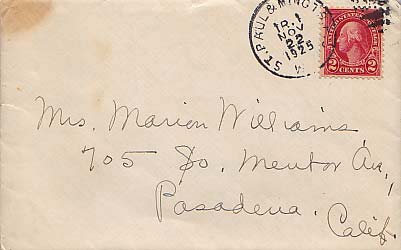 ST. PAUL & MINOT
1
R.
NOV
22
1925
W.
UNITED STATES POSTAGE
2 CENTS 2
Mrs. Marion Williams,
705 So. Mentor Av.,
Pasadena.
Calif.